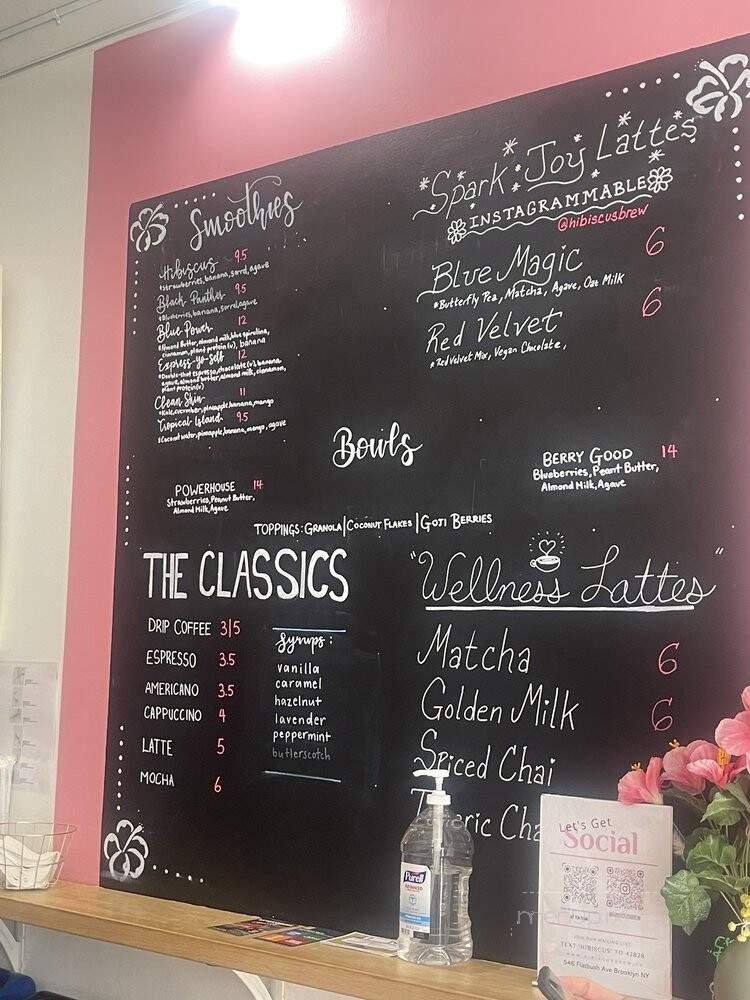 Smoothies
Hibiscus 9.5
*Strawberries, banana, sorrel, agave
Black Panther 9.5
*Blueberries, banana, sorrel, agave
Blue Power 12
*Almond Butter, almond milk, blue spirulina,
cinnamon, plant protein(v), banana
Express-yo-self 12
*Double-shot espresso, chocolate(v), banana,
agave, almond butter, almond milk, cinnamon,
plant protein(v)
Clean Skin 11
*Kale, cucumber, pineapple, banana, mango
Tropical Island 9.5
*Coconut water, pineapple, banana, mango, agave
Spark Joy Lattes
INSTAGRAMMABLE
@hibiscusbrew
Blue Magic 6
*Butterfly Pea, Matcha, Agave, Oat Milk
Red Velvet 6
*Red Velvet Mix, Vegan Chocolate,
Bowls
POWERHOUSE 14
Strawberries, Peanut Butter,
Almond Milk, Agave
BERRY GOOD 14
Blueberries, Peant Butter,
Almond Milk, Agave
TOPPINGS: GRANOLA | COCONUT FLAKES | GOTI BERRIES
THE CLASSICS
DRIP COFFEE 3|5
ESPRESSO 3.5
AMERICANO 3.5
CAPPUCCINO 4
LATTE 5
MOCHA 6
Syrups:
vanilla
caramel
hazelnut
lavender
peppermint
butterscotch
"Wellness Lattes"
Matcha 6
Golden Milk 6
Spiced Chai
Purell
ADVANCED
Let's Get
Social
JOIN OUR MAILING LIST
TEXT 'HIBISCUS' TO 42828
546 Flatbush Ave Brooklyn NY